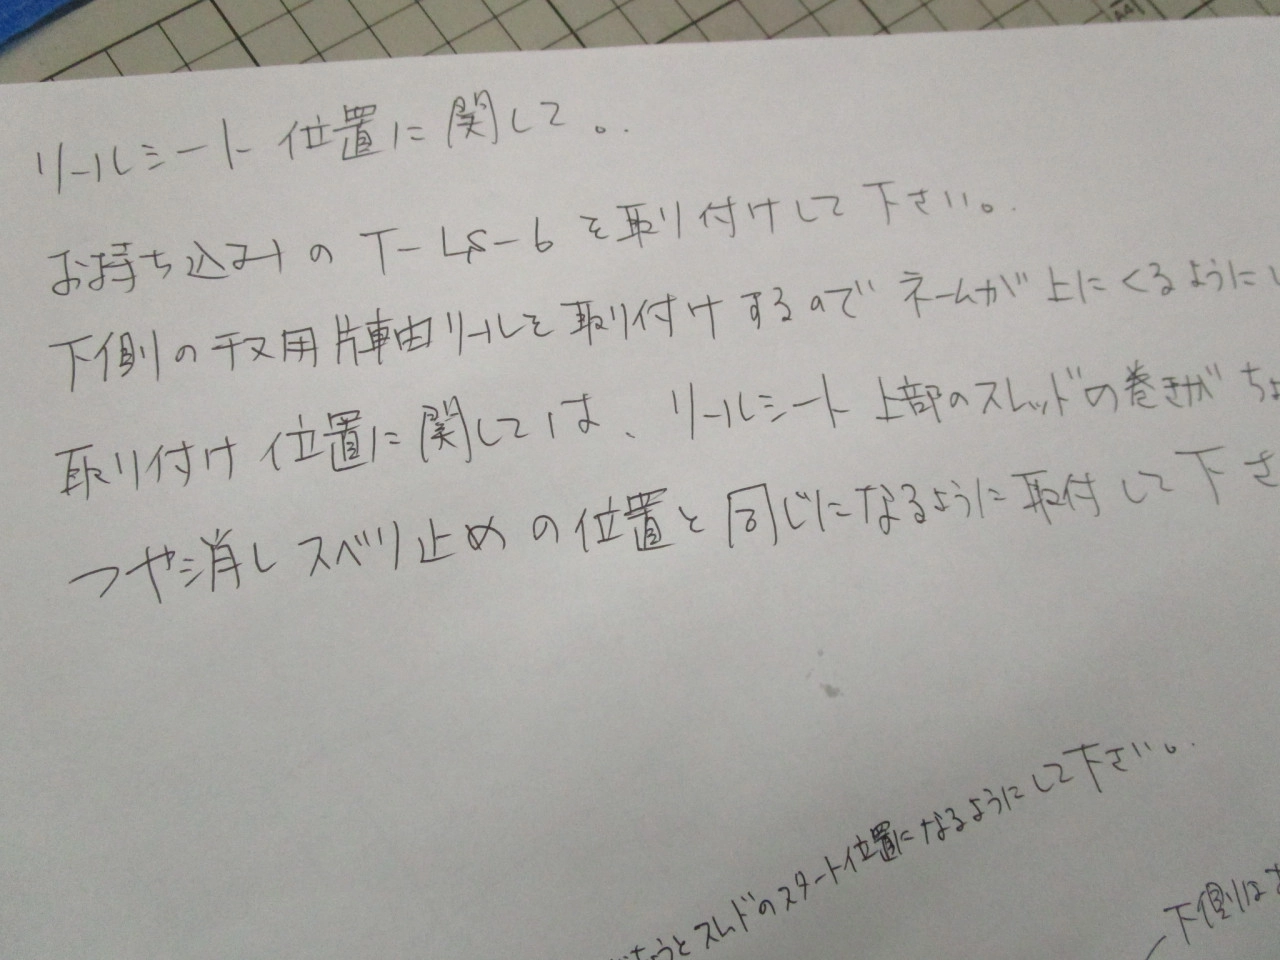 リールシート位置に関して。
お持ち込みの T-LS-6 を取り付けして下さい。
下側の千又用片軸リールを取り付けするのでネームが上にくるようにし
取り付け位置に関しては、リールシート上部のスレッドの巻きがちょ
つや消しスベリ止めの位置と同じになるように取付して下さ
ちょうどスレッドのスタート位置になるようにして下さい。
下側は